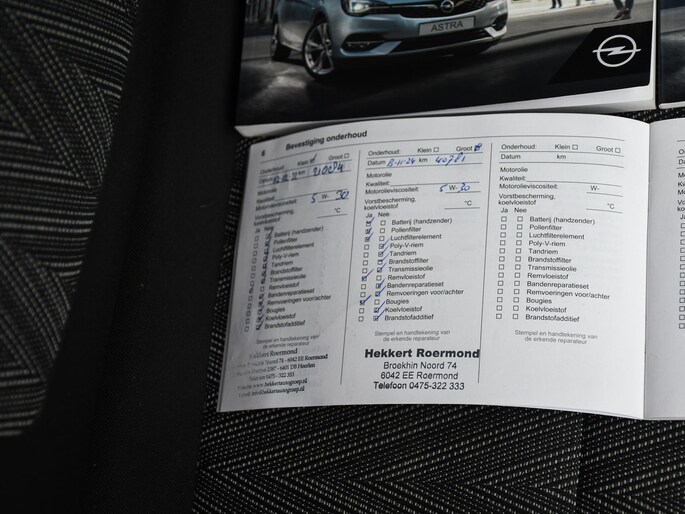 ASTRA
6 Bevestiging onderhoud
Onderhoud: Klein Groot
Datum km
Motorolie
Kwaliteit:
Motorolieviscositeit: 5 W- 30
Vorstbescherming, °C
koelvloeistof
Ja Nee
Batterij (handzender)
Pollenfilter
Luchtfilterelement
Poly-V-riem
Tandriem
Brandstoffilter
Transmissieolie
Remvloeistof
Bandenreparatieset
Remvoeringen voor/achter
Bougies
Koelvloeistof
Brandstofadditief
Stempel en handtekening van
de erkende reparateur
Hekkert Roermond
Noord 74 - 6042 EE Roermond
6401 DB Heerlen
0475 - 322 333
www.hekkertautogroep.nl
Onderhoud: Klein Groot
Datum 13-11-24 km 40781
Motorolie
Kwaliteit:
Motorolieviscositeit: 5 W- 30
Vorstbescherming, °C
koelvloeistof
Ja Nee
Batterij (handzender)
Pollenfilter
Luchtfilterelement
Poly-V-riem
Tandriem
Brandstoffilter
Transmissieolie
Remvloeistof
Bandenreparatieset
Remvoeringen voor/achter
Bougies
Koelvloeistof
Brandstofadditief
Stempel en handtekening van
de erkende reparateur
Hekkert Roermond
Broekhin Noord 74
6042 EE Roermond
Telefoon 0475-322 333
Onderhoud: Klein Groot
Datum km
Motorolie
Kwaliteit:
Motorolieviscositeit: W-
Vorstbescherming, °C
koelvloeistof
Ja Nee
Batterij (handzender)
Pollenfilter
Luchtfilterelement
Poly-V-riem
Tandriem
Brandstoffilter
Transmissieolie
Remvloeistof
Bandenreparatieset
Remvoeringen voor/achter
Bougies
Koelvloeistof
Brandstofadditief
Stempel en handtekening van
de erkende reparateur